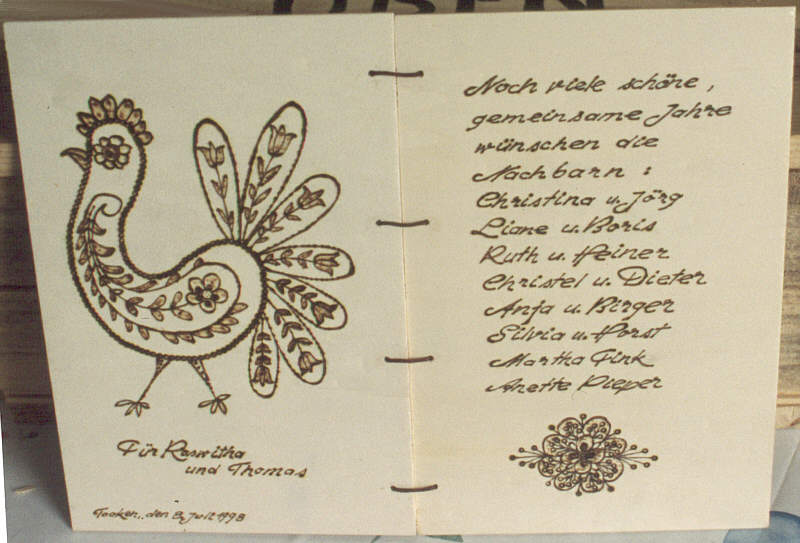 Für Roswitha
und Thomas
den 8. Juli 1998
Noch viele schöne,
gemeinsame Jahre
wünschen die
Nachbarn :
Christina u. Jörg
Liane u. Boris
Ruth u. Heiner
Christel u. Dieter
Anja u. Birger
Silvia u. Horst
Martha Fink
Anette Pieper